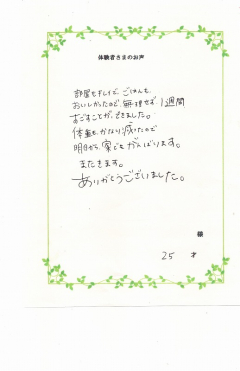 体験者さまのお声
部屋もキレイで、ごはんも
おいしかったので、無理せず1週間
すごすことが、できました。
体重も、かなり減ったので
明日から、家でもがんばります。
またきます。
ありがとうございました。
様
25 才